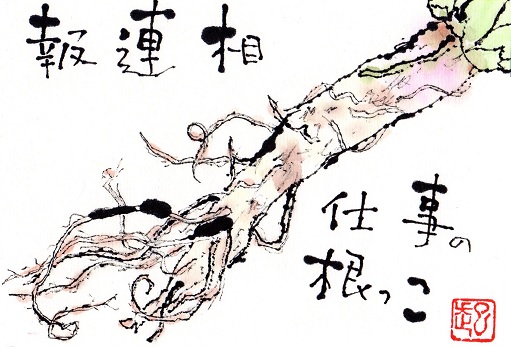 報連相
仕事の
根っこ